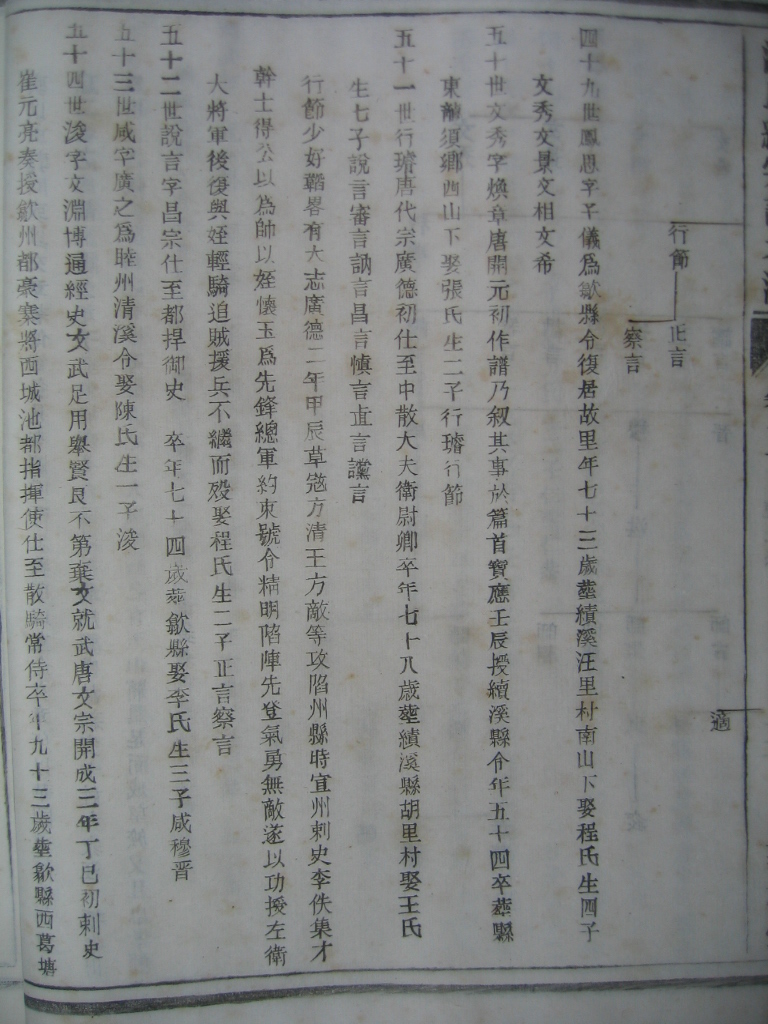 適
行節 正言
察言
四十九世鳳思字子儀為歙縣令復居故里年七十三歲塟績溪汪里村南山下娶程氏生四子
文秀文景文相文希
五十世文秀字煥章唐開元初作譜乃叙其事於篇首寶應壬辰授績溪縣令年五十四卒塟縣
東敵須鄉西山下娶張氏生二子行璿行節
五十一世行璿唐代宗廣德初仕至中散大夫衛尉卿卒年七十八歲塟績溪縣胡里村娶王氏
生七子說言審言訥言昌言慎言直言讜言
行節少好韜畧有大志廣德二年甲辰草宼方清王方敵等攻陷州縣時宣州刺史李佚集才
幹士得公以為帥以姪懷玉為先鋒總軍約束號令精明陷陣先登氣勇無敵遂以功授左衛
大將軍後復與姪輕騎追賊援兵不繼而殁娶程氏生二子正言察言
五十二世說言字昌宗仕至都捍御史 卒年七十四歲塟歙縣娶李氏生三子咸穆晋
五十三世咸字廣之爲睦州清溪令娶陳氏生一子浚
五十四世浚字文淵博通經史文武足用舉賢良不第棄文就武唐文宗開成二年丁巳初刺史
崔元亮奏授歙州都豪寨將西城池都指揮使仕至散騎常侍卒年九十三歲塟歙縣西葛塘